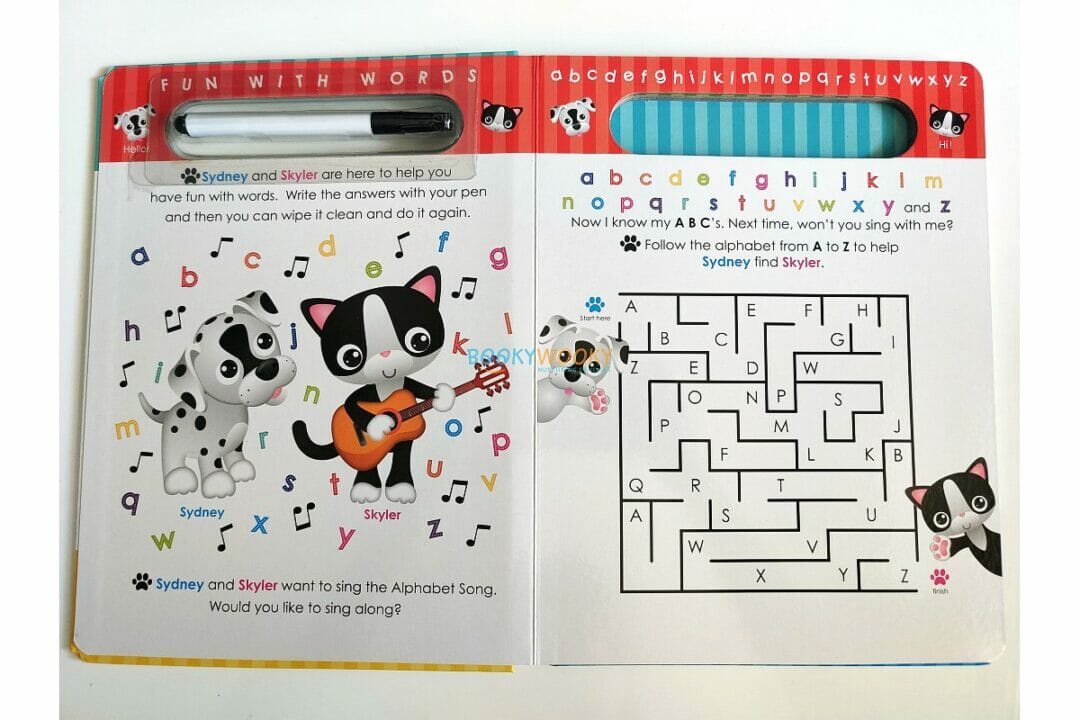 FUN WITH WORDS
Hello!
Sydney and Skyler are here to help you
have fun with words. Write the answers with your pen
and then you can wipe it clean and do it again.
a b c d e f g
h i j k l
m n o p
q r s t u v
w x y z
BOOKYWOOKY
Sydney
Skyler
Sydney and Skyler want to sing the Alphabet Song.
Would you like to sing along?
abcdefghijklmnopqrstuvwxyz
Hi!
a b c d e f g h i j k l m
n o p q r s t u v w x y and z
Now I know my A B C's. Next time, won't you sing with me?
Follow the alphabet from A to Z to help
Sydney find Skyler.
Start here
A E F H
B C G I
Z E D W
O N P S
P M J
F L K B
Q R T
A S U
W V
X Y Z
finish